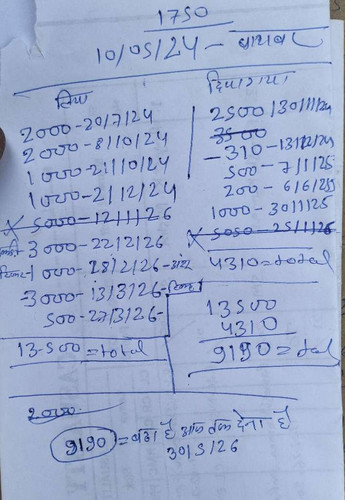 1750
10/05/24 -
लिया
2000 - 20/7/24
2000 - 8/10/24
1000 - 21/10/24
1000 - 2/12/24
x 5000 - 12/1/26
3000 - 22/2/26
1000 - 28/2/26 -
3000 - 13/3/26 -
500 - 27/3/26 -
13500 = total
दिया गया
2500/30/11/24
3500
- 310 - 13/12/24
500 - 7/1/25
200 - 6/6/25
1000 - 30/1/25
x 5050 - 25/1/26
4310 = total
13500
4310
9190 = total
2000
9190 = बचा है आज तक देना है
30/5/26